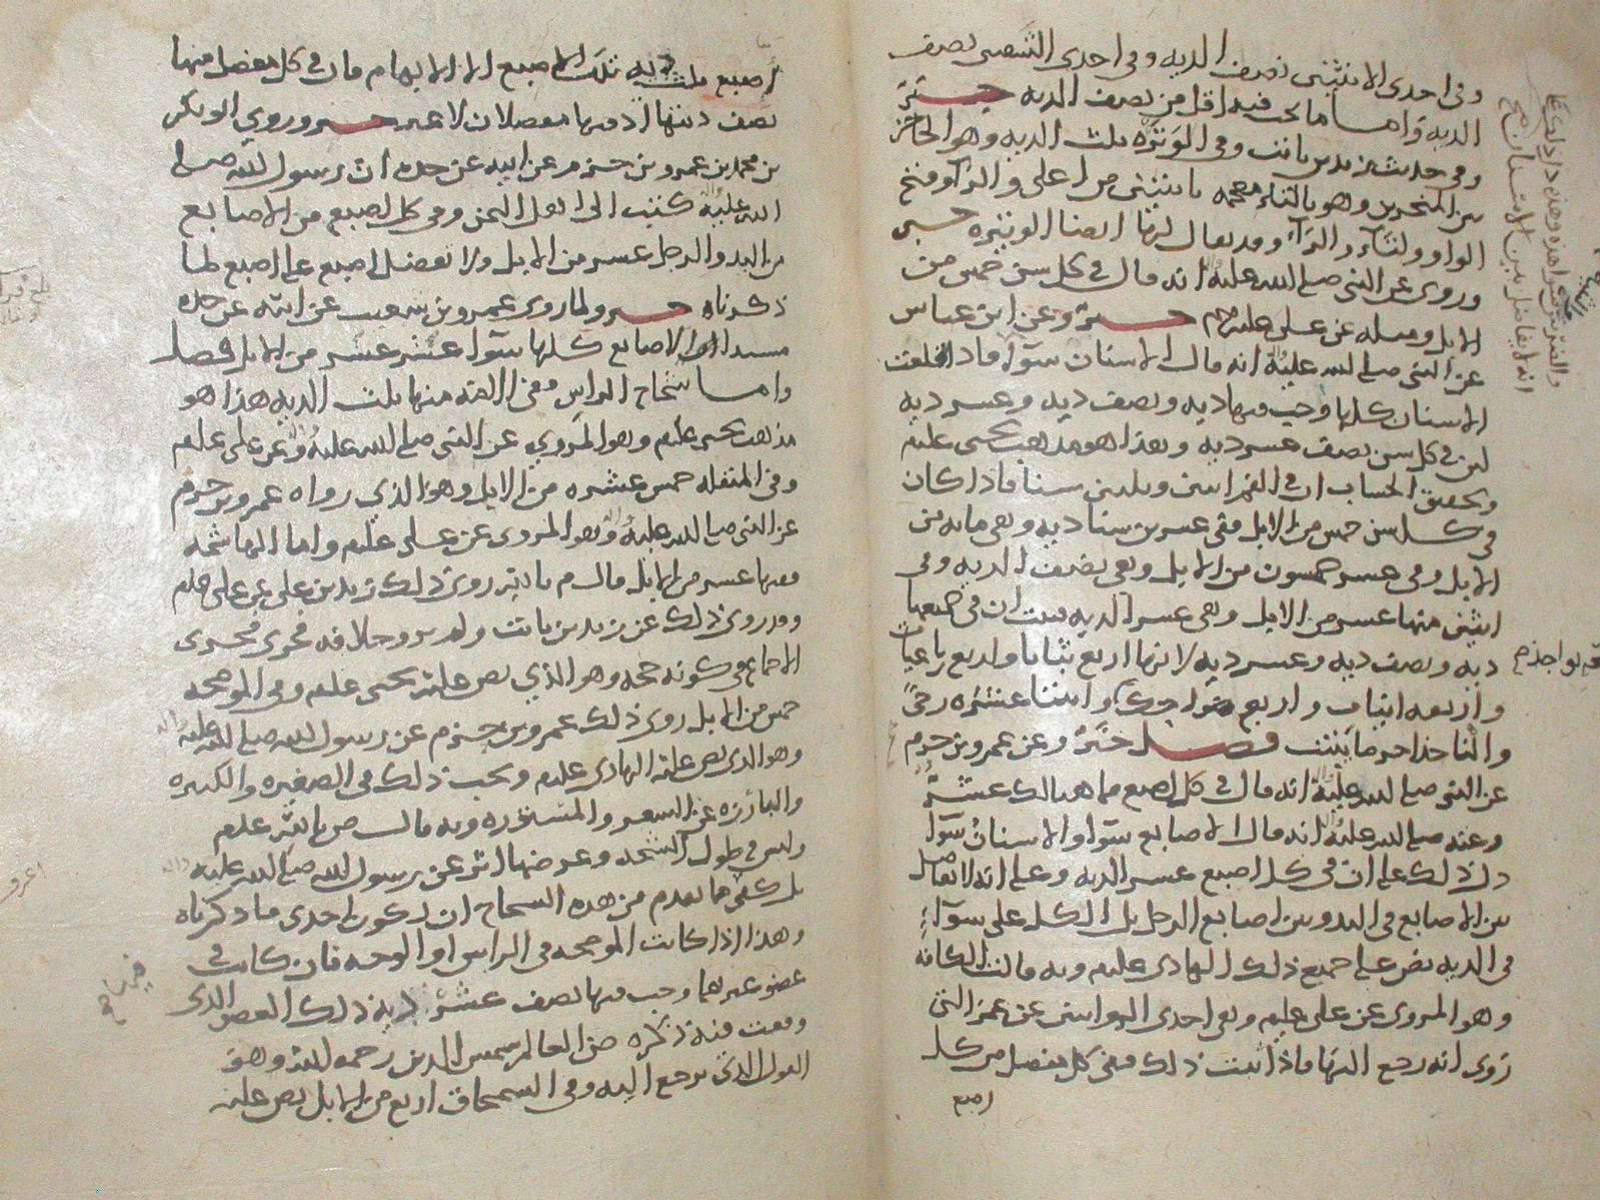 وفي احدى الانثيين نصف الديه وفي احدى الشفتين نصف
الديه واما ما يجب فيه اقل من نصف الديه خبر
وفي حديث زيد بن ثابت وفي الوتره ثلث الديه وهو الحاجز
بين المنخرين وهو بالتاء معجمه باثنتين من اعلى والراء وفتح
الواو والتاء والراء وقد يقال لها ايضا الوتيره خبر
وروي عن النبي صلى الله عليه انه قال في كل سن خمس من
الابل ومثله عن علي عليلم خبر وعن ابن عباس
عن النبي صلى الله عليه انه قال الاسنان سوآء فاذا قلعت
الاسنان كلها وجب فيها ديه ونصف ديه وعشر ديه
لان في كل سن نصف عشر ديه وهذا هو مذهب يحيى عليلم
وتحقيق الحساب ان في الفم اثنين وثلثين سنا فاذا كان
في كل سن خمس من الابل ففي عشرين سنا ديه وهي مايه من
الابل وفي عشر خمسون من الابل وهي نصف الديه وفي
اثنين منها عشر من الابل وهي عشر الديه فبان ان في جميعها
ديه ونصف ديه وعشر ديه لانها اربع ثنايا واربع رباعيات
واربعه انياب واربع ضواحك واثنتا عشره رحى
والنواجذ اخر ما ينبت فصل خبر وعن عمرو بن حزم
عن النبي صلى الله عليه انه قال في كل اصبع مما هنالك عشر
وعنه صلى الله عليه انه قال الاصابع سوآء والاسنان سوآء
دل ذلك على ان في كل اصبع عشر الديه وعلى انه لا تفاضل
بين الاصابع في اليد وبين اصابع الرجل بل الكل على سوآء
في الديه نص على جميع ذلك الهادي عليلم وبه قالت الكافه
وهو المروي عن علي عليلم وهي احدى الروايتين عن عمر التي
روي انه رجع اليها فاذا ثبت ذلك ففي كل مفصل من كل
اصبع
اصبع ثلث ديه تلك الاصبع الا الابهام فان في كل مفصل منها
نصف ديتها اذ فيها مفصلان لا غير خبر وروي ابو بكر
بن محمد بن عمرو بن حزم عن ابيه عن جده ان رسول الله صلى
الله عليه كتب الى اهل اليمن وفي كل اصبع من الاصابع
من اليد والرجل عشر من الابل ولا تفضل اصبع على اصبع لما
ذكرناه خبر ولما روى عمرو بن شعيب عن ابيه عن جده
مسندا الاصابع كلها سوآء عشر عشر من الابل فصل
واما شجاج الراس ففي الامه منها ثلث الديه هذا هو
مذهب يحيى عليلم وهو المروي عن النبي صلى الله عليه وعن علي عليلم
وفي المنقله خمس عشره من الابل وهو الذي رواه عمرو بن حزم
عن النبي صلى الله عليه وهو المروي عن علي عليلم واما الهاشمه
ففيها عشر من الابل قال م بالله روى ذلك زيد بن علي عن علي عليلم
وقد روي ذلك عن زيد بن ثابت ولم يرو خلافه فجرى مجرى
الاجماع في كونه حجه وهو الذي نص عليه يحيى عليلم وفي الموضحه
خمس من الابل روى ذلك عمرو بن حزم عن رسول الله صلى الله عليه
وهو الذي نص عليه الهادي عليلم ويجب ذلك في الصغيره والكبيره
والبارزه عن الشعر والمستتره وبه قال ص بالله عليلم
وليس في طول الشجه وعرضها اثر عن رسول الله صلى الله عليه
بل كفى ما تقدم من هذه الشجاج ان يكون احدى ما ذكرناه
وهذا اذا كانت الموضحه في الراس او الوجه فان كانت في
عضو غيرهما وجب فيها نصف عشر ديه ذلك العضو الذي
وقعت فيه ذكره ض العالم شمس الدين رحمه الله وهو
القول الذي يرجع اليه وفي السمحاق اربع من الابل نص عليه